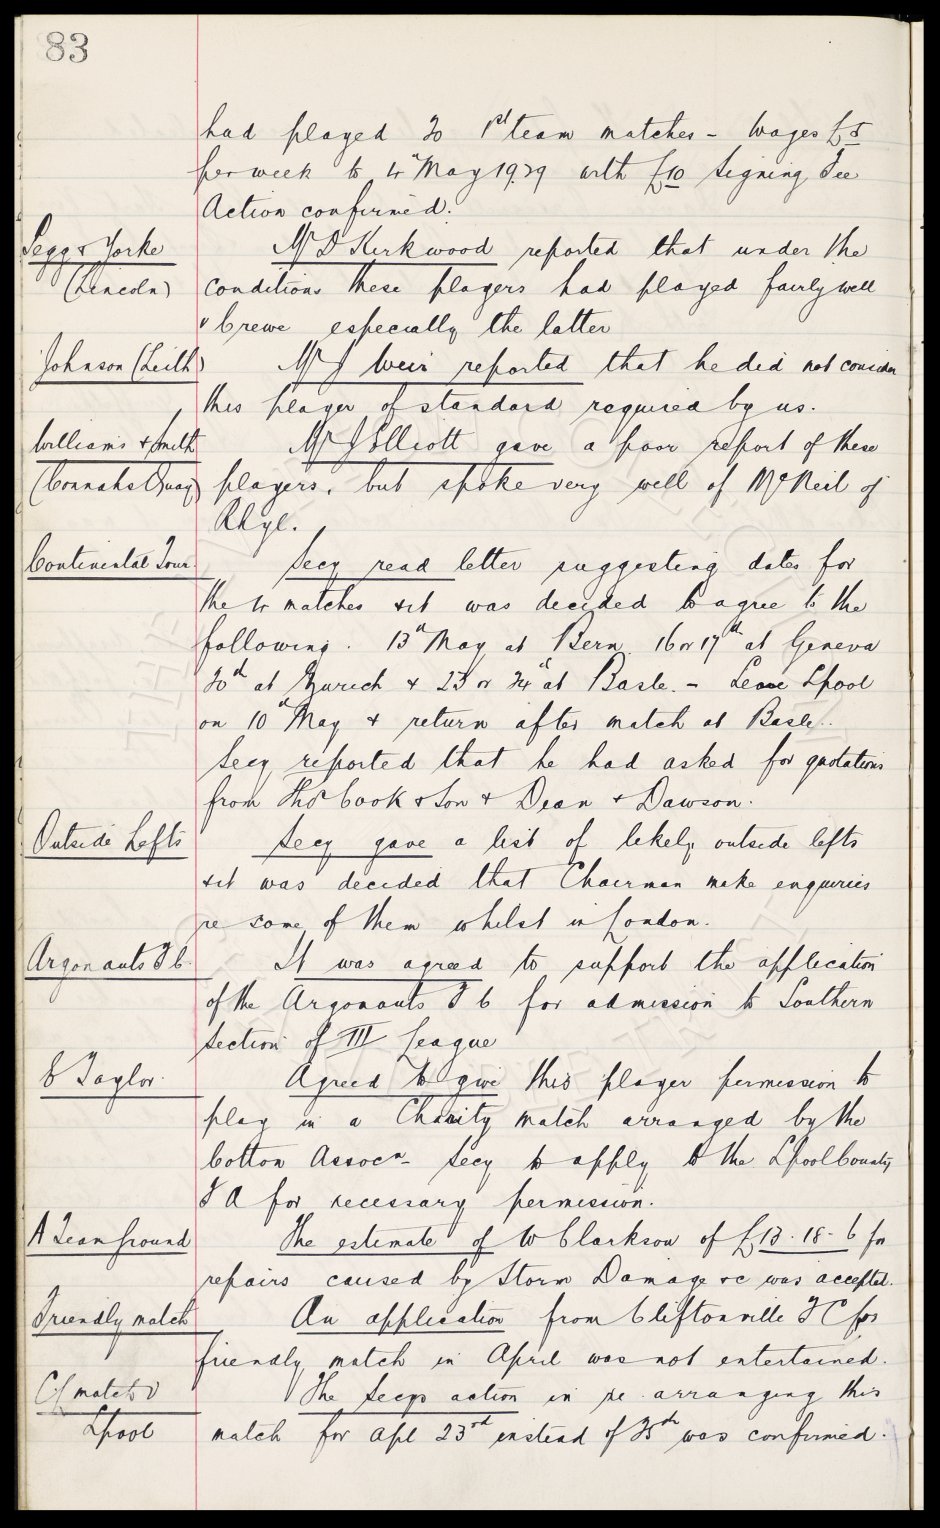 83
had played 20 1st team matches - Wages £5
per week to 4th May 1929 with £10 Signing Fee
Action confirmed.
Pegg & Yorke
(Lincoln)
Mr D Kirkwood reported that under the
conditions these players had played fairly well
v Crewe especially the latter
Johnson (Leith)
Mr J Weir reported that he did not consider
this player of standard required by us.
Williams & Smith
(Connahs Quay)
Mr J Elliott gave a poor report of these
players, but spoke very well of McNeil of
Rhyl.
Continental Tour.
Secy read letter suggesting dates for
the 4 matches & it was decided to agree to the
following. 13th May at Bern 16 or 17th at Geneva
20th at Zurich & 23 or 24th at Basle. - Leave Lpool
on 10th May & return after match at Basle..
Secy reported that he had asked for quotations
from Thos Cook & Son & Dean & Dawson.
Outside Lefts
Secy gave a list of likely outside lefts
& it was decided that Chairman make enquiries
re some of them whilst in London.
Argonauts F C.
It was agreed to support the application
of the Argonauts F C for admission to Southern
Section of III League
E Taylor.
Agreed to give this player permission to
play in a Charity match arranged by the
Cotton Assocn - Secy to apply to the Lpool County
F A for necessary permission.
A Team Ground
The estimate of W Clarkson of £13-18-6 for
repairs caused by Storm Damage &c was accepted.
Friendly match
An application from Cliftonville F C for
friendly match in April was not entertained.
CL match v
Lpool
The Secys action in re-arranging this
match for Apl 23rd instead of 25th was confirmed.